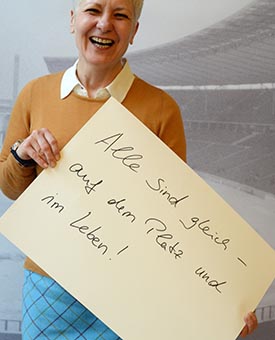 Alle sind gleich –
auf dem Platz und
im Leben!